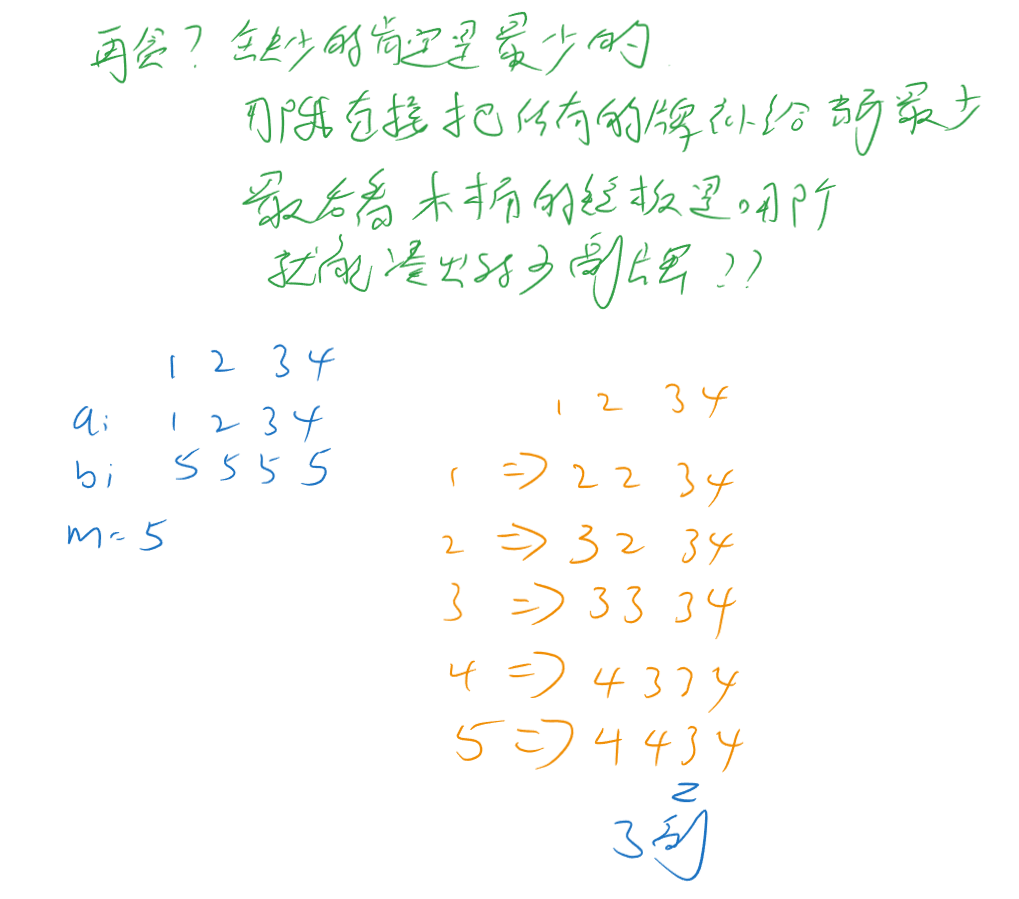 再贪？缺少的肯定是最少的
那直接把所有的牌补给当前最少
最后看木桶的短板是哪个
就能凑出好多副牌？？
1 2 3 4
ai 1 2 3 4
bi 5 5 5 5
m = 5
1 2 3 4
1 => 2 2 3 4
2 => 3 2 3 4
3 => 3 3 3 4
4 => 4 3 3 4
5 => 4 4 3 4
=
3副